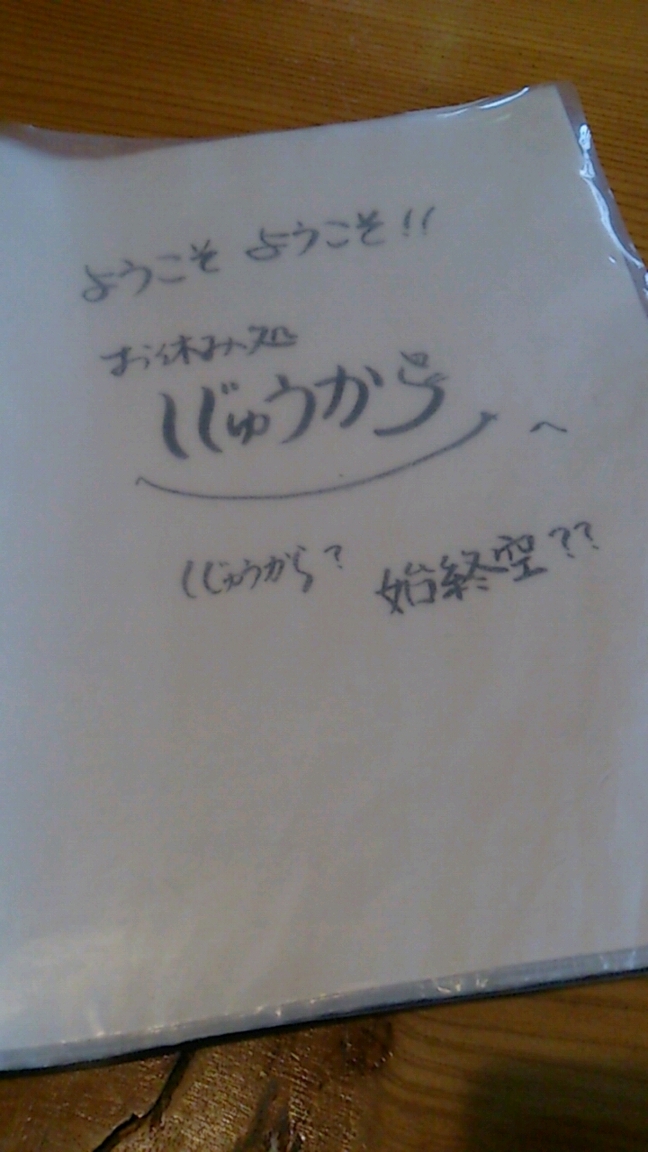 ようこそ ようこそ!!
お休み処
しじゅうから へ
しじゅうから? 始終空??